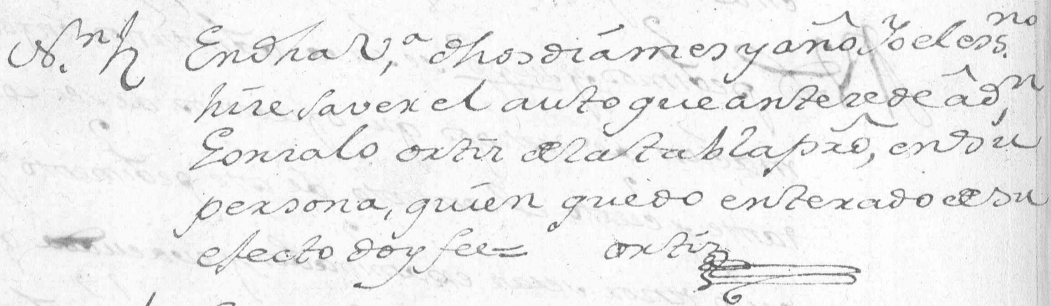 Nn. En dha Va, dhos dia mes y año Yo el essno
hize saver el auto que antezede â Dn
Gonzalo ortiz de la tabla prô, en su
persona, quien quedo enterado de su
efecto doy fee = ortiz